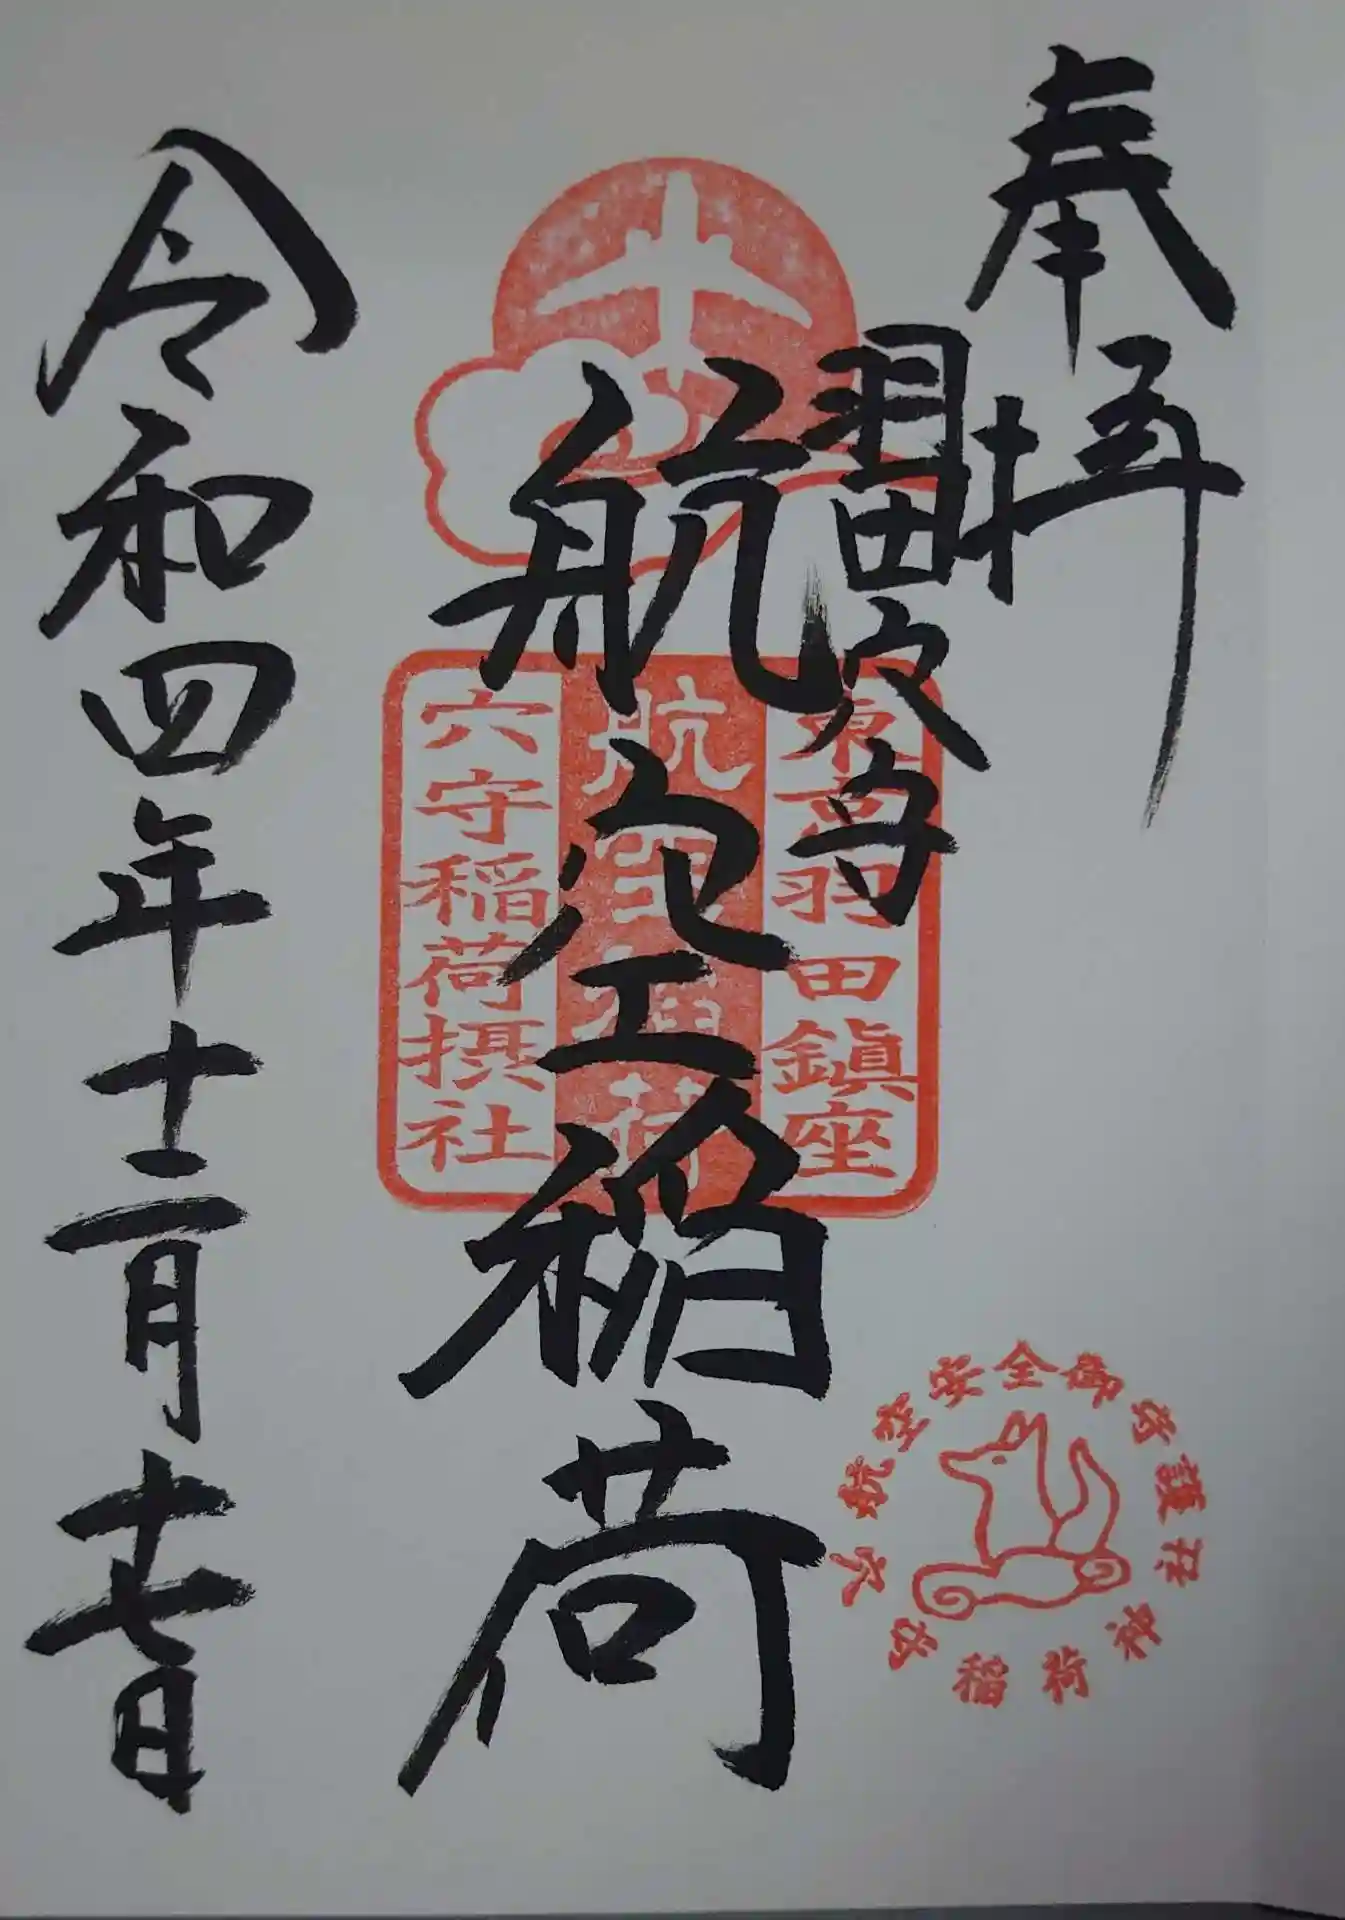 奉拝
羽田穴守
航空稲荷
令和四年十二月十七日
東京羽田鎮座
航空稲荷
穴守稲荷摂社
航空安全御守護
穴守稲荷神社